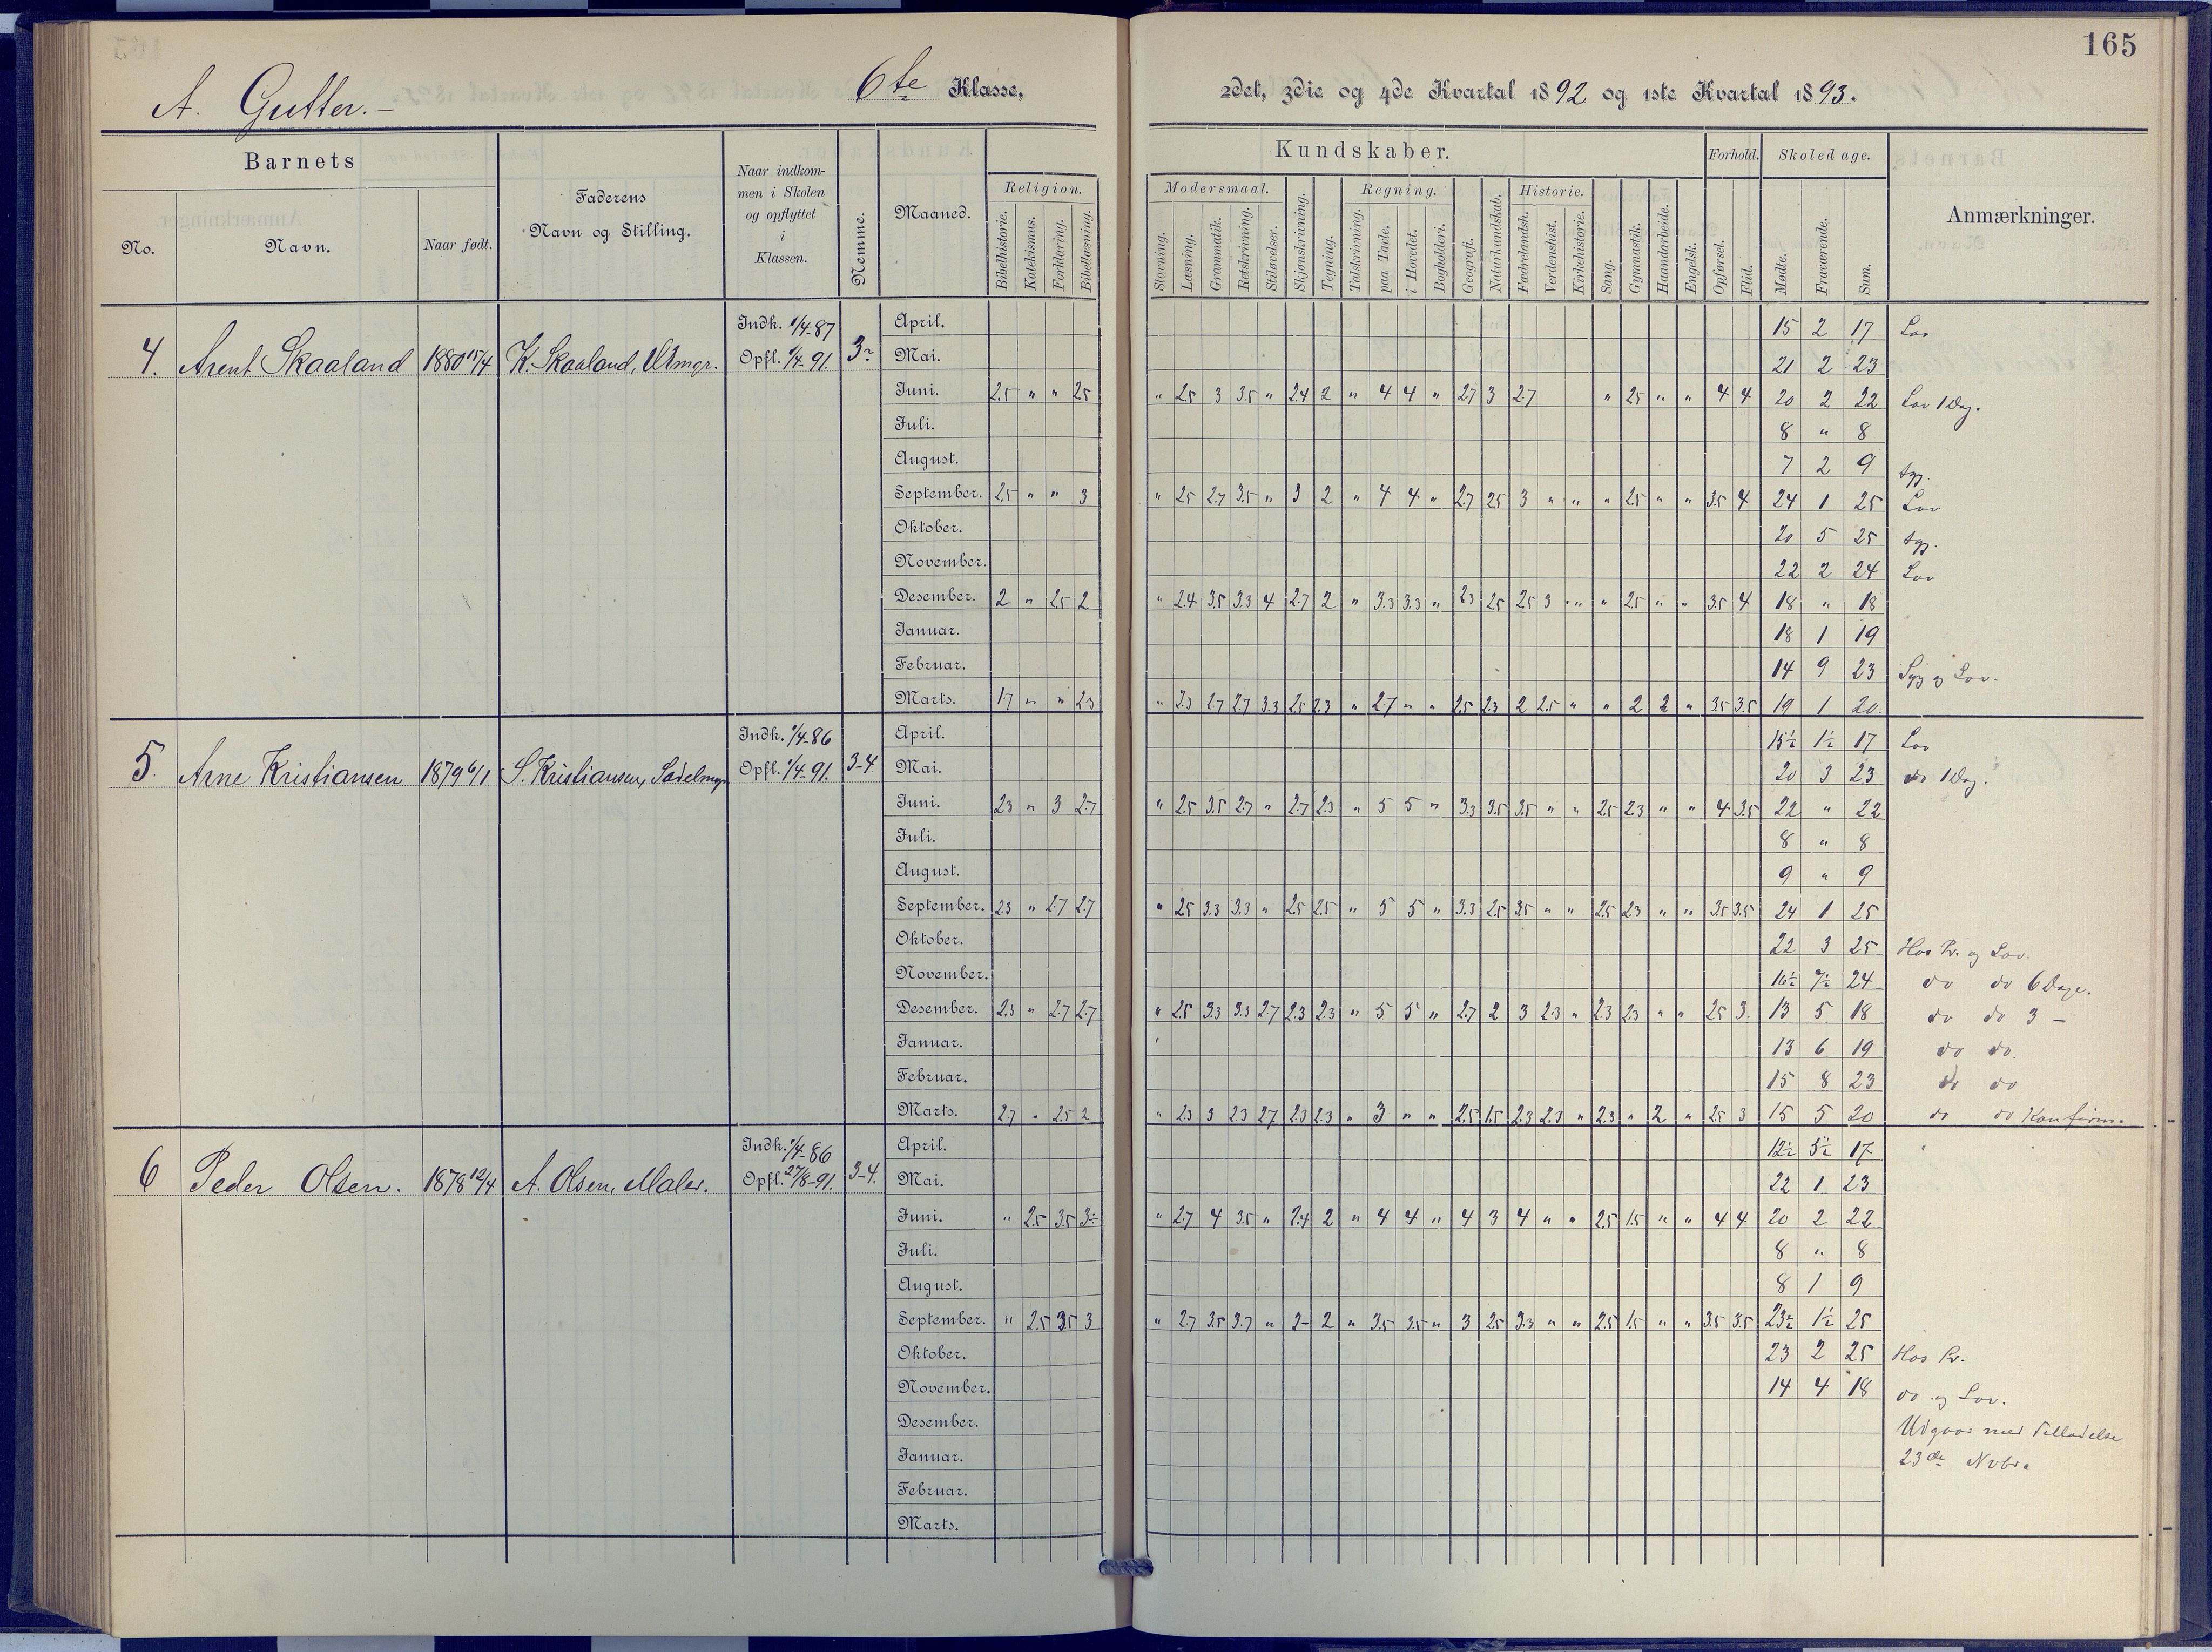 165
A. Gutter.– 6te Klasse, 2det, 3die og 4de Kvartal 1892 og 1ste Kvartal 1893.
Barnets
No. Navn. Naar født.
Faderens
Navn og Stilling.
Naar indkom-
men i Skolen
og opflyttet
i
Klassen.
Nemme.
Maaned.
Kundskaber.
Religion.
Bibelhistorie. Katekismus. Forklaring. Bibellæsning.
Modersmaal.
Stavning. Læsning. Grammatik. Retskrivning. Stiløvelser.
Skjønskrivning. Tegning.
Regning.
Talskrivning. paa Tavle. i Hovedet. Bogholderi.
Geografi. Naturkundskab.
Historie.
Fædrelandsh. Verdenshist. Kirkehistorie.
Sang. Gymnastik. Haandarbeide. Engelsk.
Forhold.
Opførsel. Flid.
Skoledage.
Mødte. Fraværende. Sum.
Anmærkninger.
4. Arent Skaaland 1880 15/4 K. Skaaland, Urmgr. Indk. 1/4-87 Opfl. 1/4-91. 3
April. 15 2 17 Lov
Mai. 21 2 23
Juni. 2.5 " " 2.5 " 2.5 3 3.5 " 2.4 2 " 4 4 " 2.7 3 2.7 " 2.5 " " 4 4 20 2 22 Lov 1 Dag.
Juli. 8 " 8
August. 7 2 9 syg.
September. 2.5 " " 3 " 2.5 2.7 3.5 " 3 2 " 4 4 " 2.7 2.5 3 " " " 2.5 " " 3.5 4 24 1 25 Lov
Oktober. 20 5 25 syg.
November. 22 2 24 Lov
Desember. 2 " 2.5 2 " 2.4 3.5 3.3 4 2.7 2 " 3.3 3.3 " 2.3 2.5 2.5 3 " " " 2.5 " " 3.5 4 18 " 18
Januar. 18 1 19
Februar. 14 9 23 Syg og Lov.
Marts. 1.7 " " 2.3 " 2.3 2.7 2.7 3.3 2.5 2.3 " 2.7 " " 2.5 2.3 2 2.5 " " 2 2 " 3.5 3.5 19 1 20.
5. Arne Kristiansen 1879 6/1 S. Kristiansen, Sadelmgr. Indk. 1/4-86 Opfl. 1/4-91. 3-4
April. 15½ 1½ 17 Lov
Mai. 20 3 23 do 1 Dag.
Juni. 2.3 " 3 2.7 " 2.5 3.5 2.7 " 2.7 2.3 " 5 5 " 3.3 3.5 3.5 " " 2.5 2.3 " " 4 3.5 22 " 22
Juli. 8 " 8
August. 9 " 9
September. 2.3 " 2.7 2.7 " 2.5 3.3 3.3 " 2.5 2.5 " 5 5 " 3.3 2.5 3.5 " " 2.5 2.3 " " 3.5 3.5 24 1 25
Oktober. 22 3 25 Hos Pr. og Lov.
November. 16½ 7½ 24 do do 6 Dage.
Desember. 2.3 " 2.7 2.7 " 2.5 3.3 3.3 2.7 2.3 2.3 " 5 5 " 2.7 2 3 2.3 " 2.3 2.3 " " 2.5 3. 13 5 18 do do 3 –
Januar. 13 6 19 do do.
Februar. 15 8 23 do do
Marts. 2.7 " 2.5 2 " 2.3 3 2.3 2.7 2.3 2.3 " 3 " " 2.5 1.5 2.3 2.3 " 2.3 " 2 " 2.5 3 15 5 20 do do Konfirm.
6 Peder Olsen. 1878 12/4 A. Olsen, Maler. Indk. 1/4-86 Opfl. 27/8-91. 3-4.
April. 12½ 5½ 17
Mai. 22 1 23
Juni. " 2.5 3.5 3 " 2.7 4 3.5 " 2.4 2 " 4 4 " 4 3 4 " " 2.5 1.5 " " 4 4 20 2 22
Juli. 8 " 8
August. 8 1 9
September. " 2.5 3.5 3 " 2.7 3.5 3.7 " 2- 2 " 3.5 3.5 " 3 2.5 3.3 " " 2.5 1.5 " " 3.5 3.5 23½ 1½ 25
Oktober. 23 2 25 Hos Pr.
November. 14 4 18 do og Lov.
Desember. Udgaar med Tilladelse
Januar. 23de Nvbr.
Februar.
Marts.